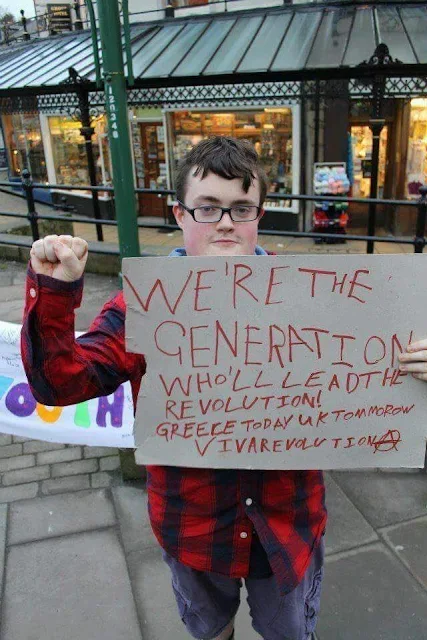 WE'RE THE
GENERATION
WHO'LL LEAD THE
REVOLUTION!
GREECE TODAY UK TOMMOROW
VIVA REVOLUTION Ⓐ
OUTH